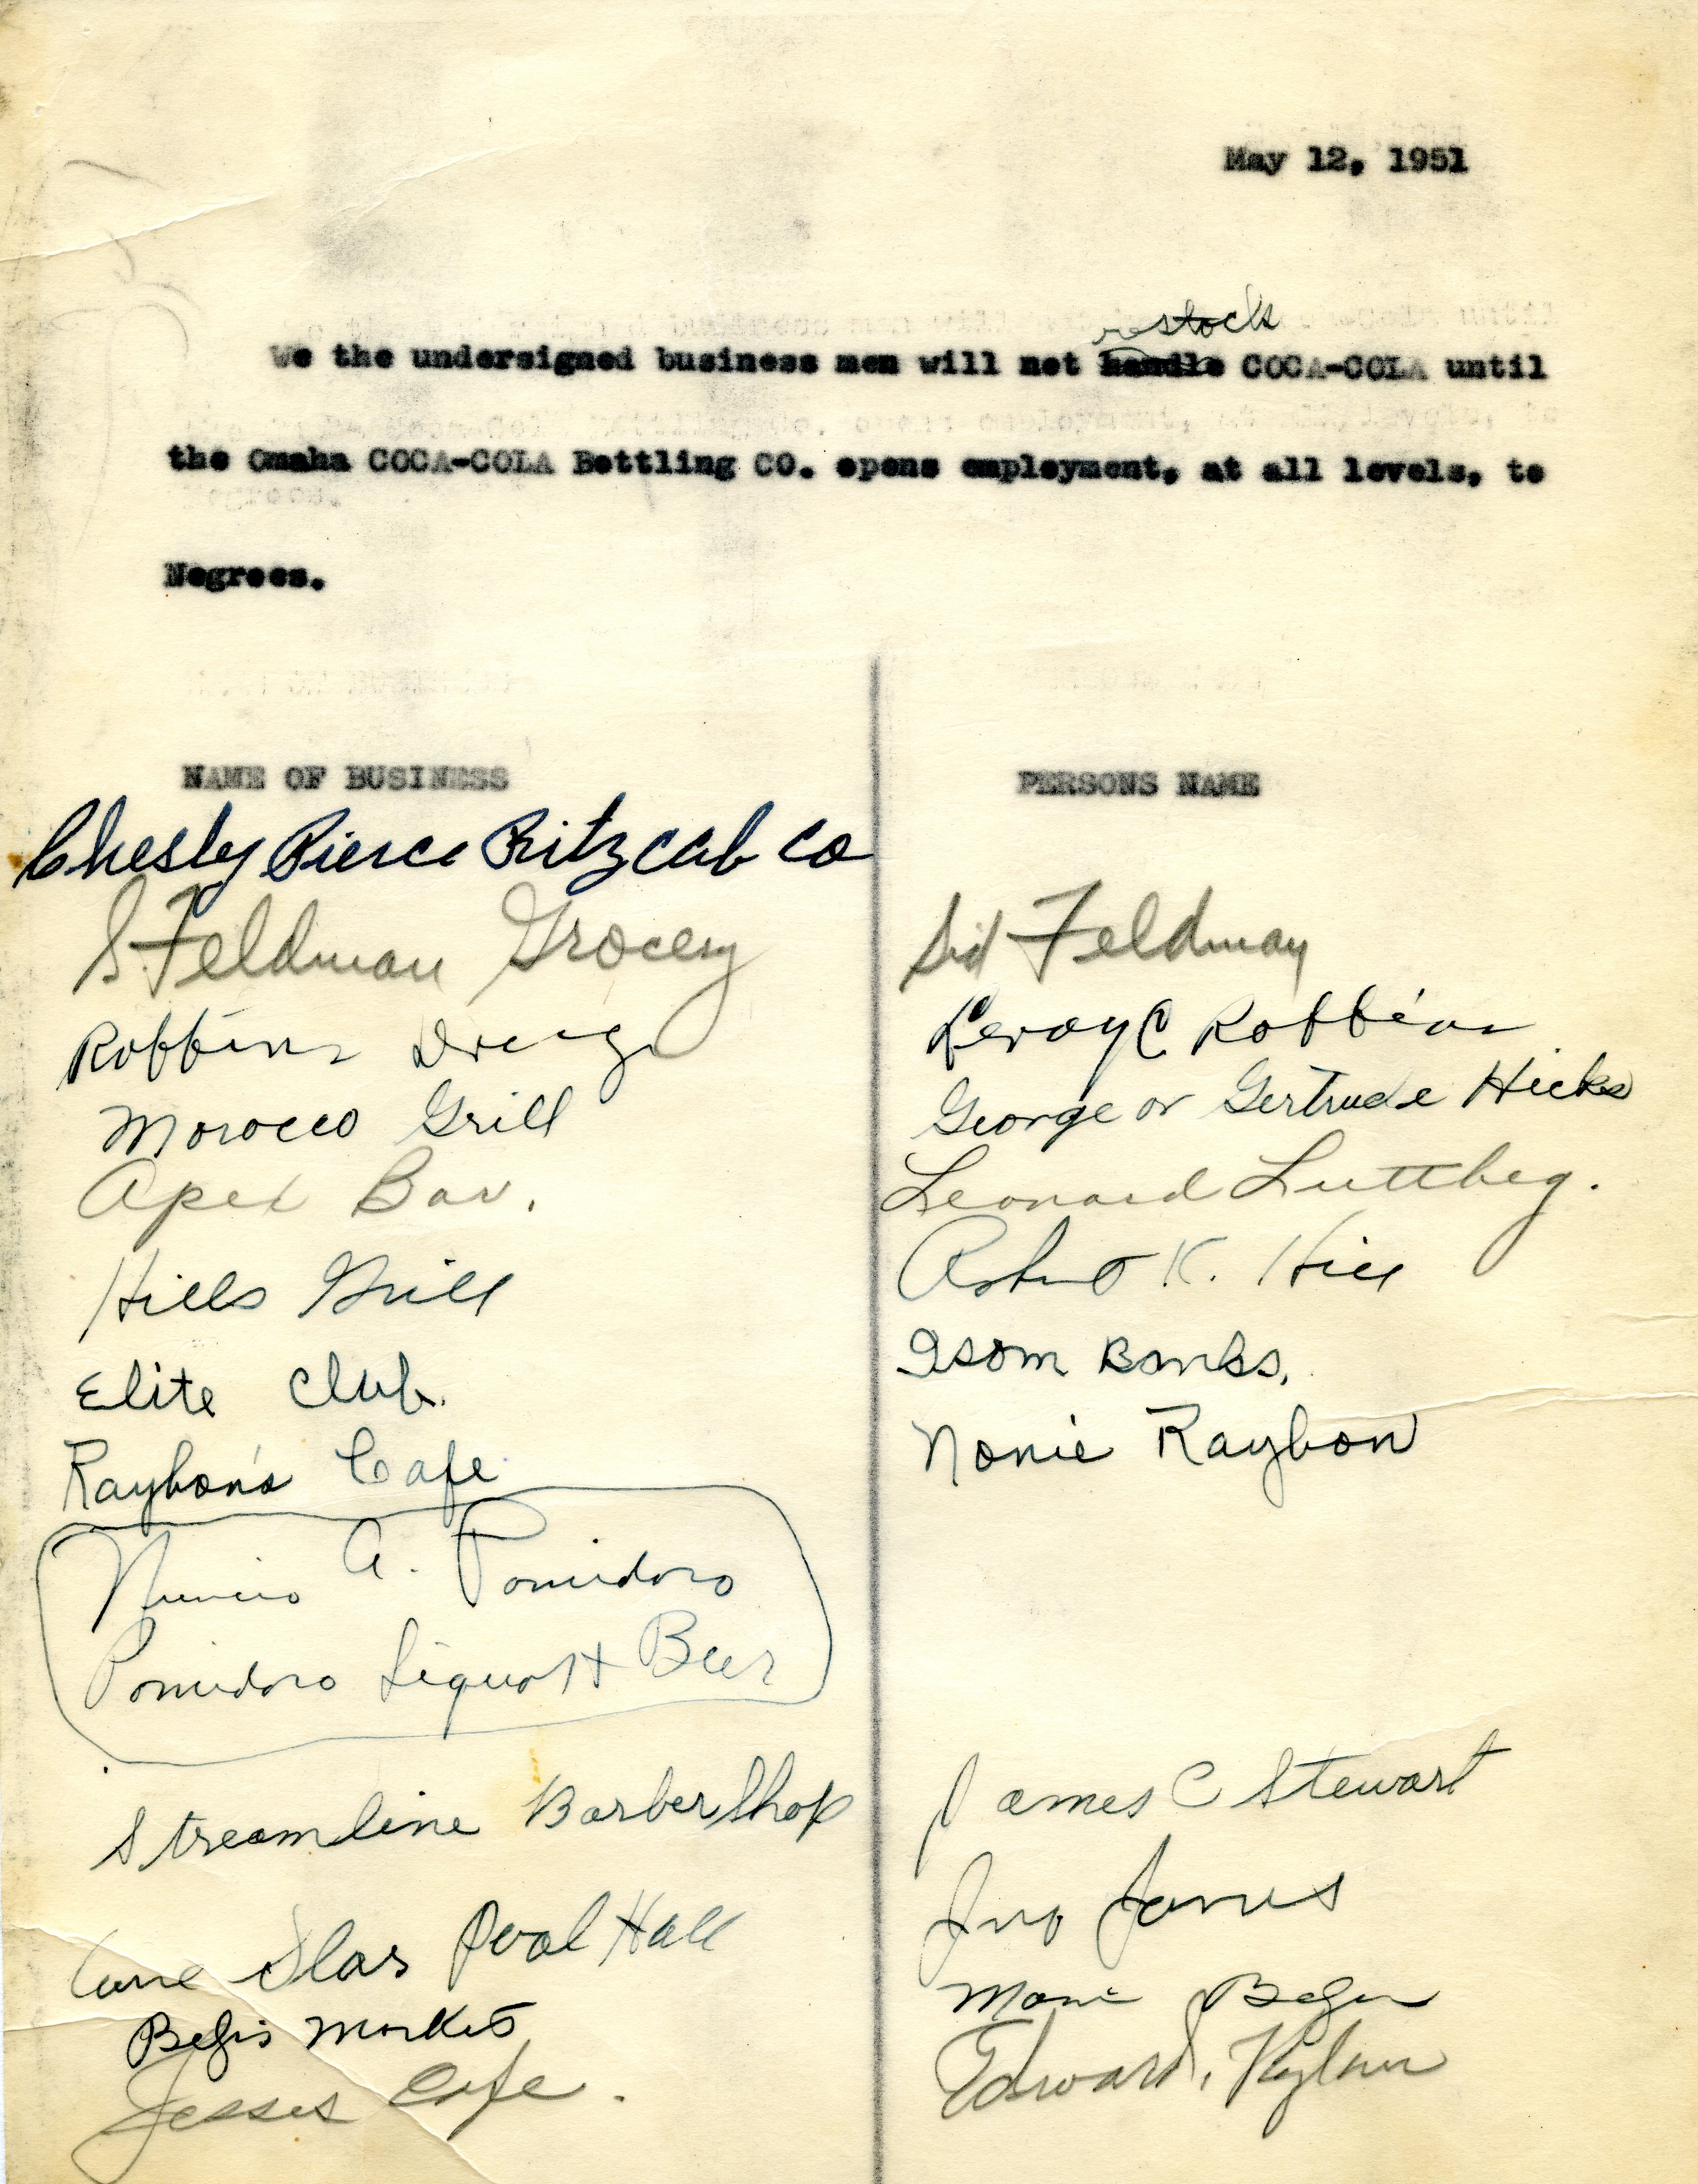 May 12, 1951
restock
We the undersigned business men will not handle COCA-COLA until
the Omaha COCA-COLA Bottling CO. opens employment, at all levels, to
Negroes.
NAME OF BUSINESS PERSONS NAME
Chesley Pierce Ritz cab co
S. Feldman Grocery Sid Feldman
Robbins Drug Leroy C Robbins
Morocco Grill George or Gertrude Hicks
Apex Bar. Leonard Luttbeg.
Hills Grill Robert K. Hill
Elite Club. Isom Banks.
Raybon's Cafe Nonie Raybon
Nuncio A. Pomidoro
Pomidoro Liquor & Beer
Streamline Barber Shop James C Stewart
Lone Star Pool Hall Jno Jones
Market
Jesses Cafe. Edward